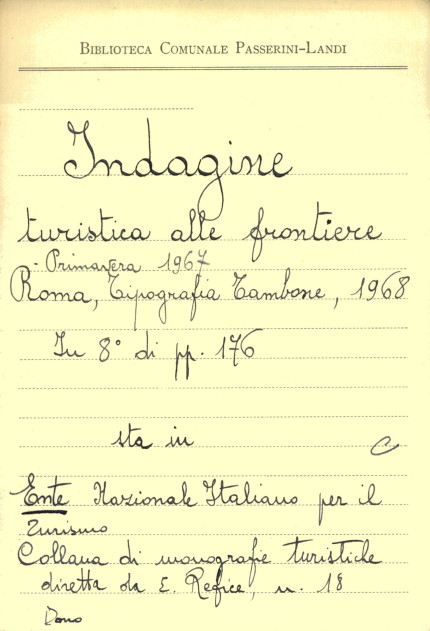 BIBLIOTECA COMUNALE PASSERINI-LANDI
Indagine
turistica alle frontiere
- Primavera 1967
Roma, Tipografia Tambone, 1968
In 8° di pp. 176
sta in
C
Ente Nazionale Italiano per il
Turismo
Collana di monografie turistiche
diretta da E. Refice, n. 18
Dono